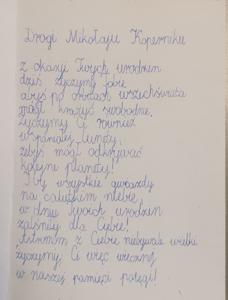 Drogi Mikołaju Koperniku
z okazji Twych urodzin
dziś życzymy Tobie
abyś po orbitach wszechświata
mógł krążyć swobodnie.
Życzymy Ci również
wspaniałej lunety,
żebyś mógł odkrywać
kolejne planety!
I by wszystkie gwiazdy
na calutkim niebie
w dniu Twoich urodzin
zalśniły dla Ciebie!
Astronom z Ciebie niebywale wielki
życzymy Ci więc wiecznej
w naszej pamięci potęgi!